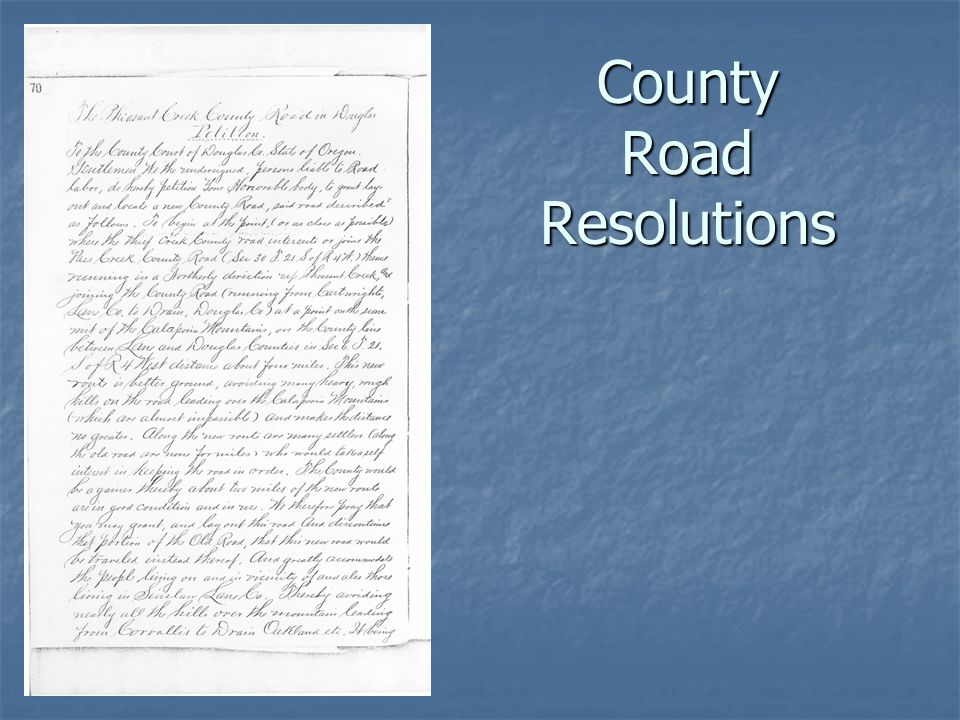 70
The Pheasant Creek County Road in Douglas
Petition.
To the County Court of Douglas Co. State of Oregon.
Gentlemen We the undersigned, persons liable to Road
labor, do hereby petition Your Honorable body, to grant lay
out and locate a new County Road, said road described
as follows. To begin at the point, (or as close as possible)
where the Thief Creek County road intersects or joins the
Pass Creek County Road (Sec 30 T. 21. S of R 4 W.) thence
running in a Northerly direction up Pheasant Creek, and
joining the County Road (running from Cartwrights,
Lane Co. to Drain, Douglas Co) at a point on the sum
mit of the Calapoia Mountains, on the County line
between Lane and Douglas Counties in Sec 6. T. 21.
S of R 4 West distance about four miles. This new
route is better ground, avoiding many heavy, rough
hills on the road leading over the Calapoia Mountains
(which are almost impassible) and makes the distance
no greater. Along the new route are many settlers (along
the old road are none for miles) who would take a self
interest in keeping the road in order. The County would
be a gainer thereby about two miles of the new route
are in good condition and in use. We therefore pray that
you may grant, and lay out this road and discontinue
that portion of the Old Road, that this new road would
be traveled instead thereof. And greatly accommodate
the people living on and in vicinity of and also those
living in Siuslaw Lane Co. Thereby avoiding
nearly all the hills over the mountain leading
from Corvallis to Drain Oakland etc. It being
County
Road
Resolutions